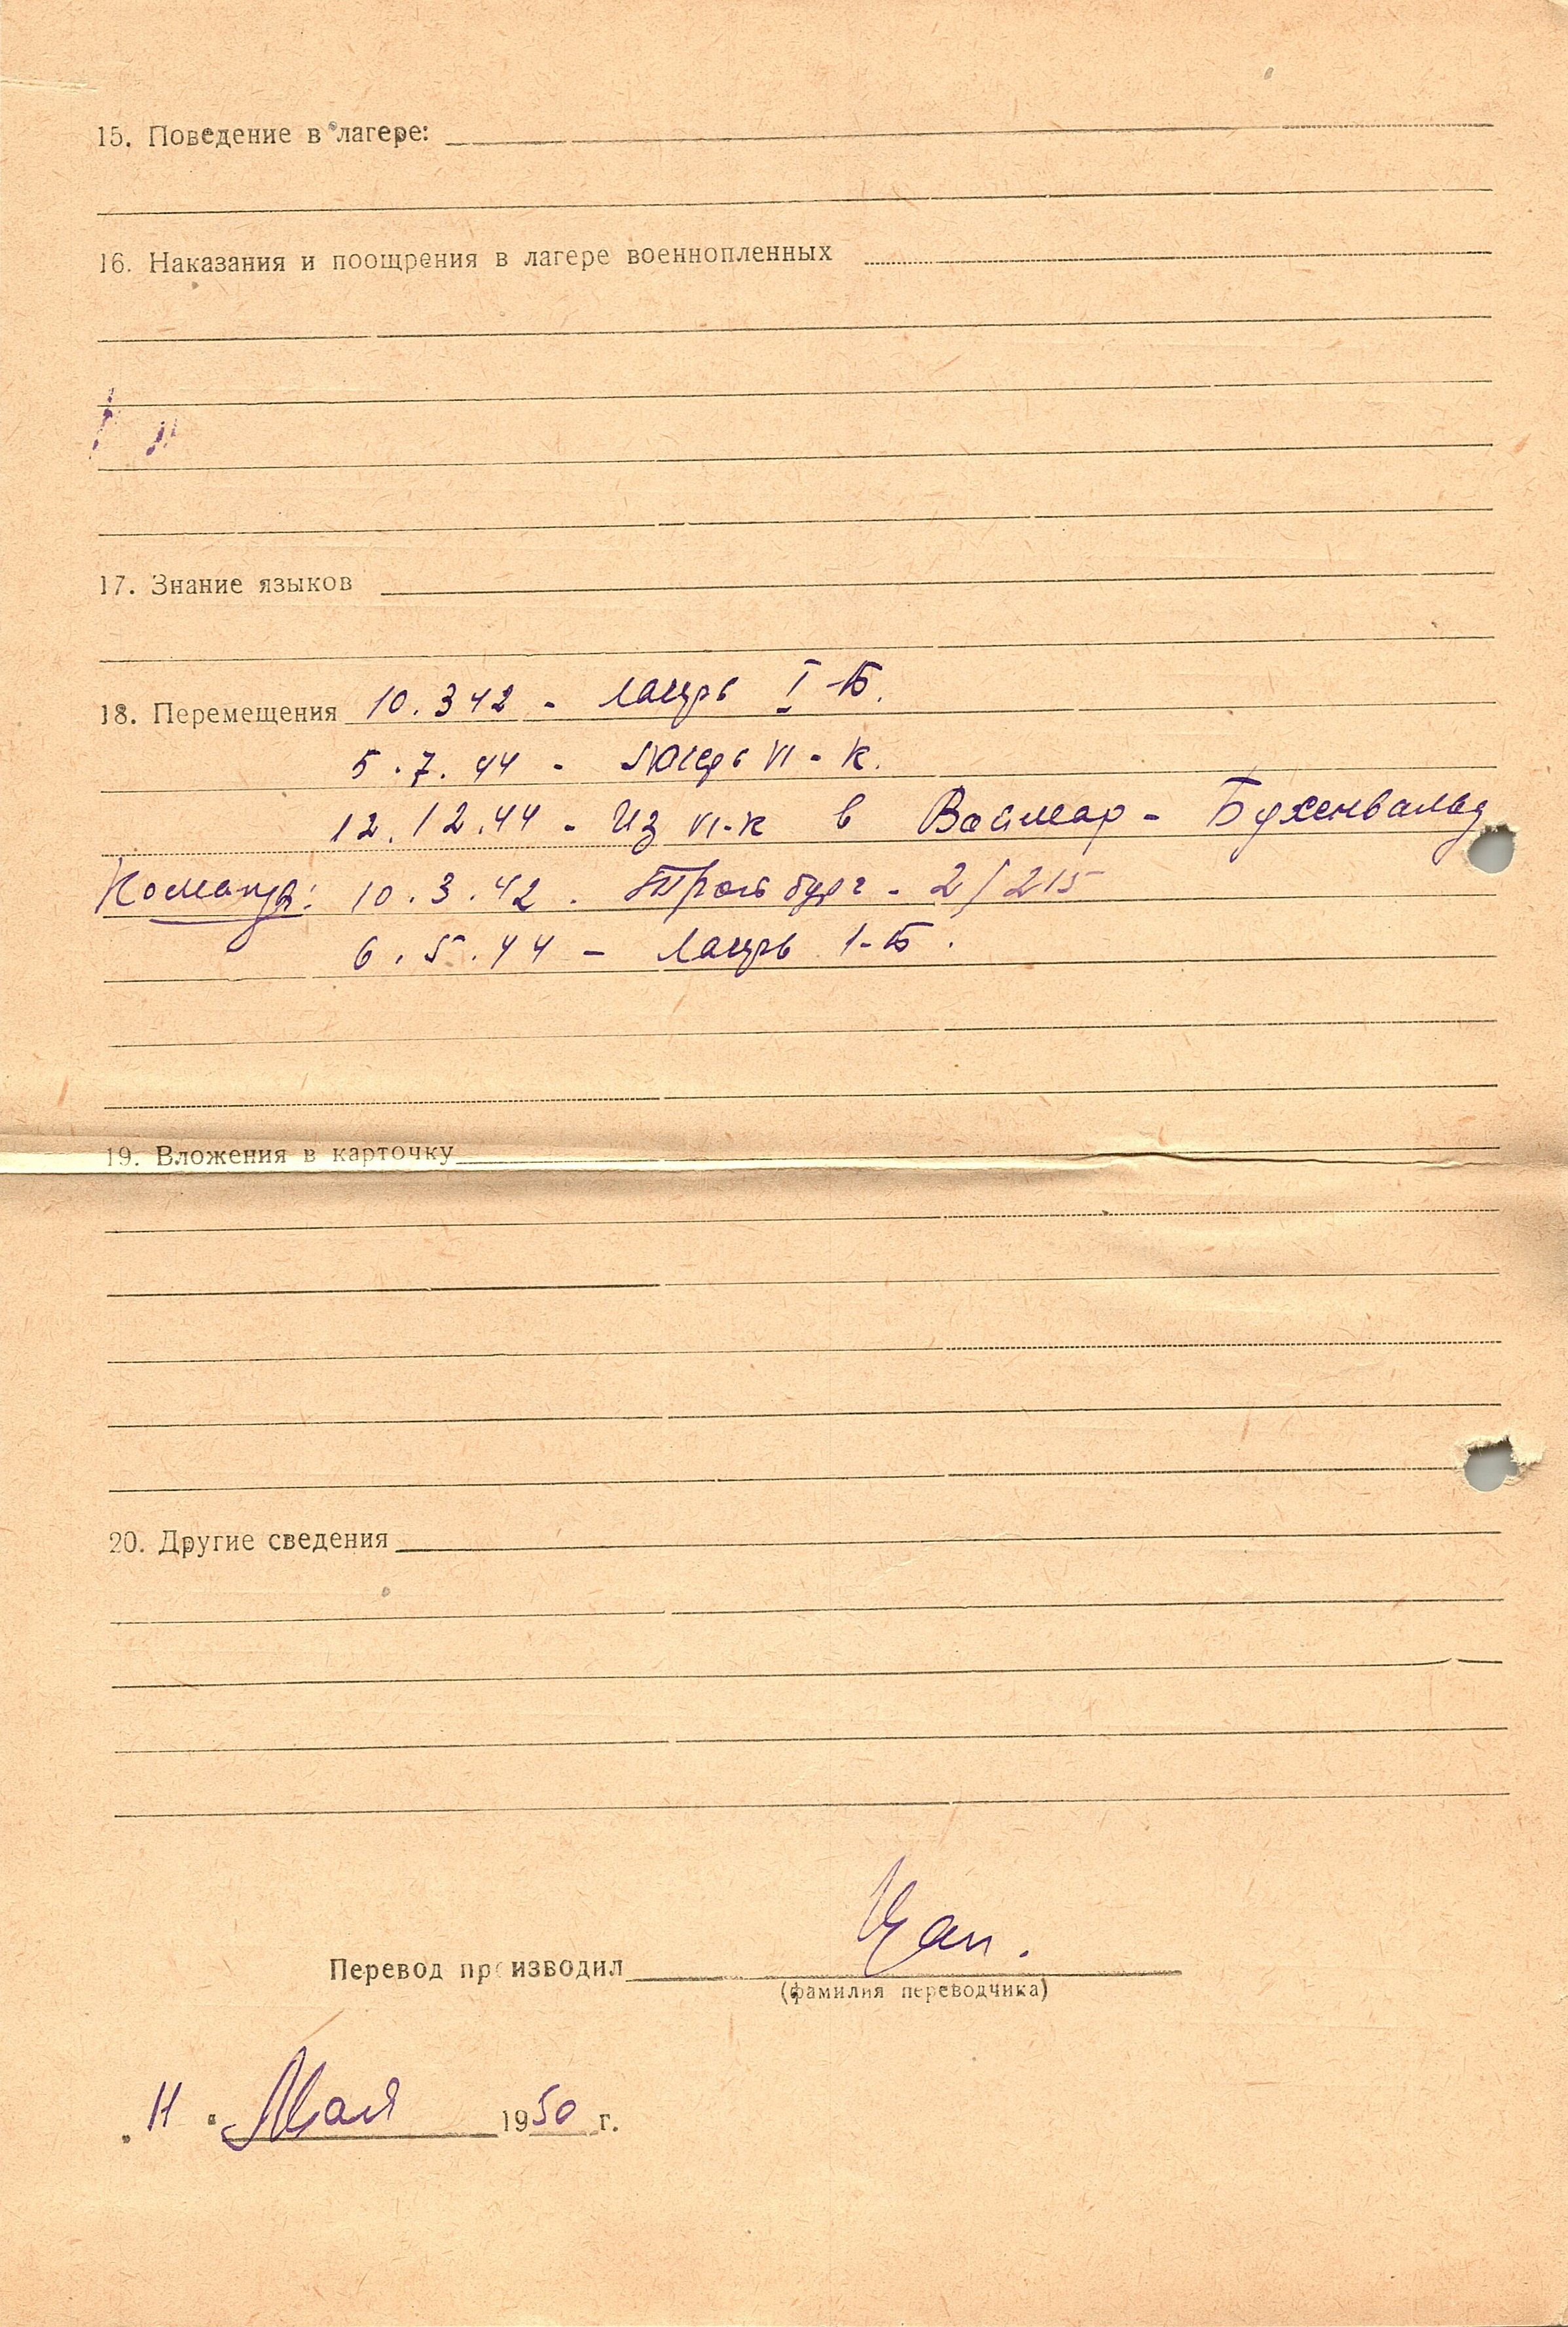 15. Поведение в лагере:
16. Наказания и поощрения в лагере военнопленных
17. Знание языков
18. Перемещения 10.3 42 - лагерь I-Б.
5.7.44 - лагерь VI-К.
12.12.44 - Из VI-К в Ваймар - Бухенвальд
Команда: 10.3.42 - 2/215
6.5.44 - лагерь 1-Б.
19. Вложения в карточку
20. Другие сведения
Перевод производил
(фамилия переводчика)
„11“ Мая 1950 г.